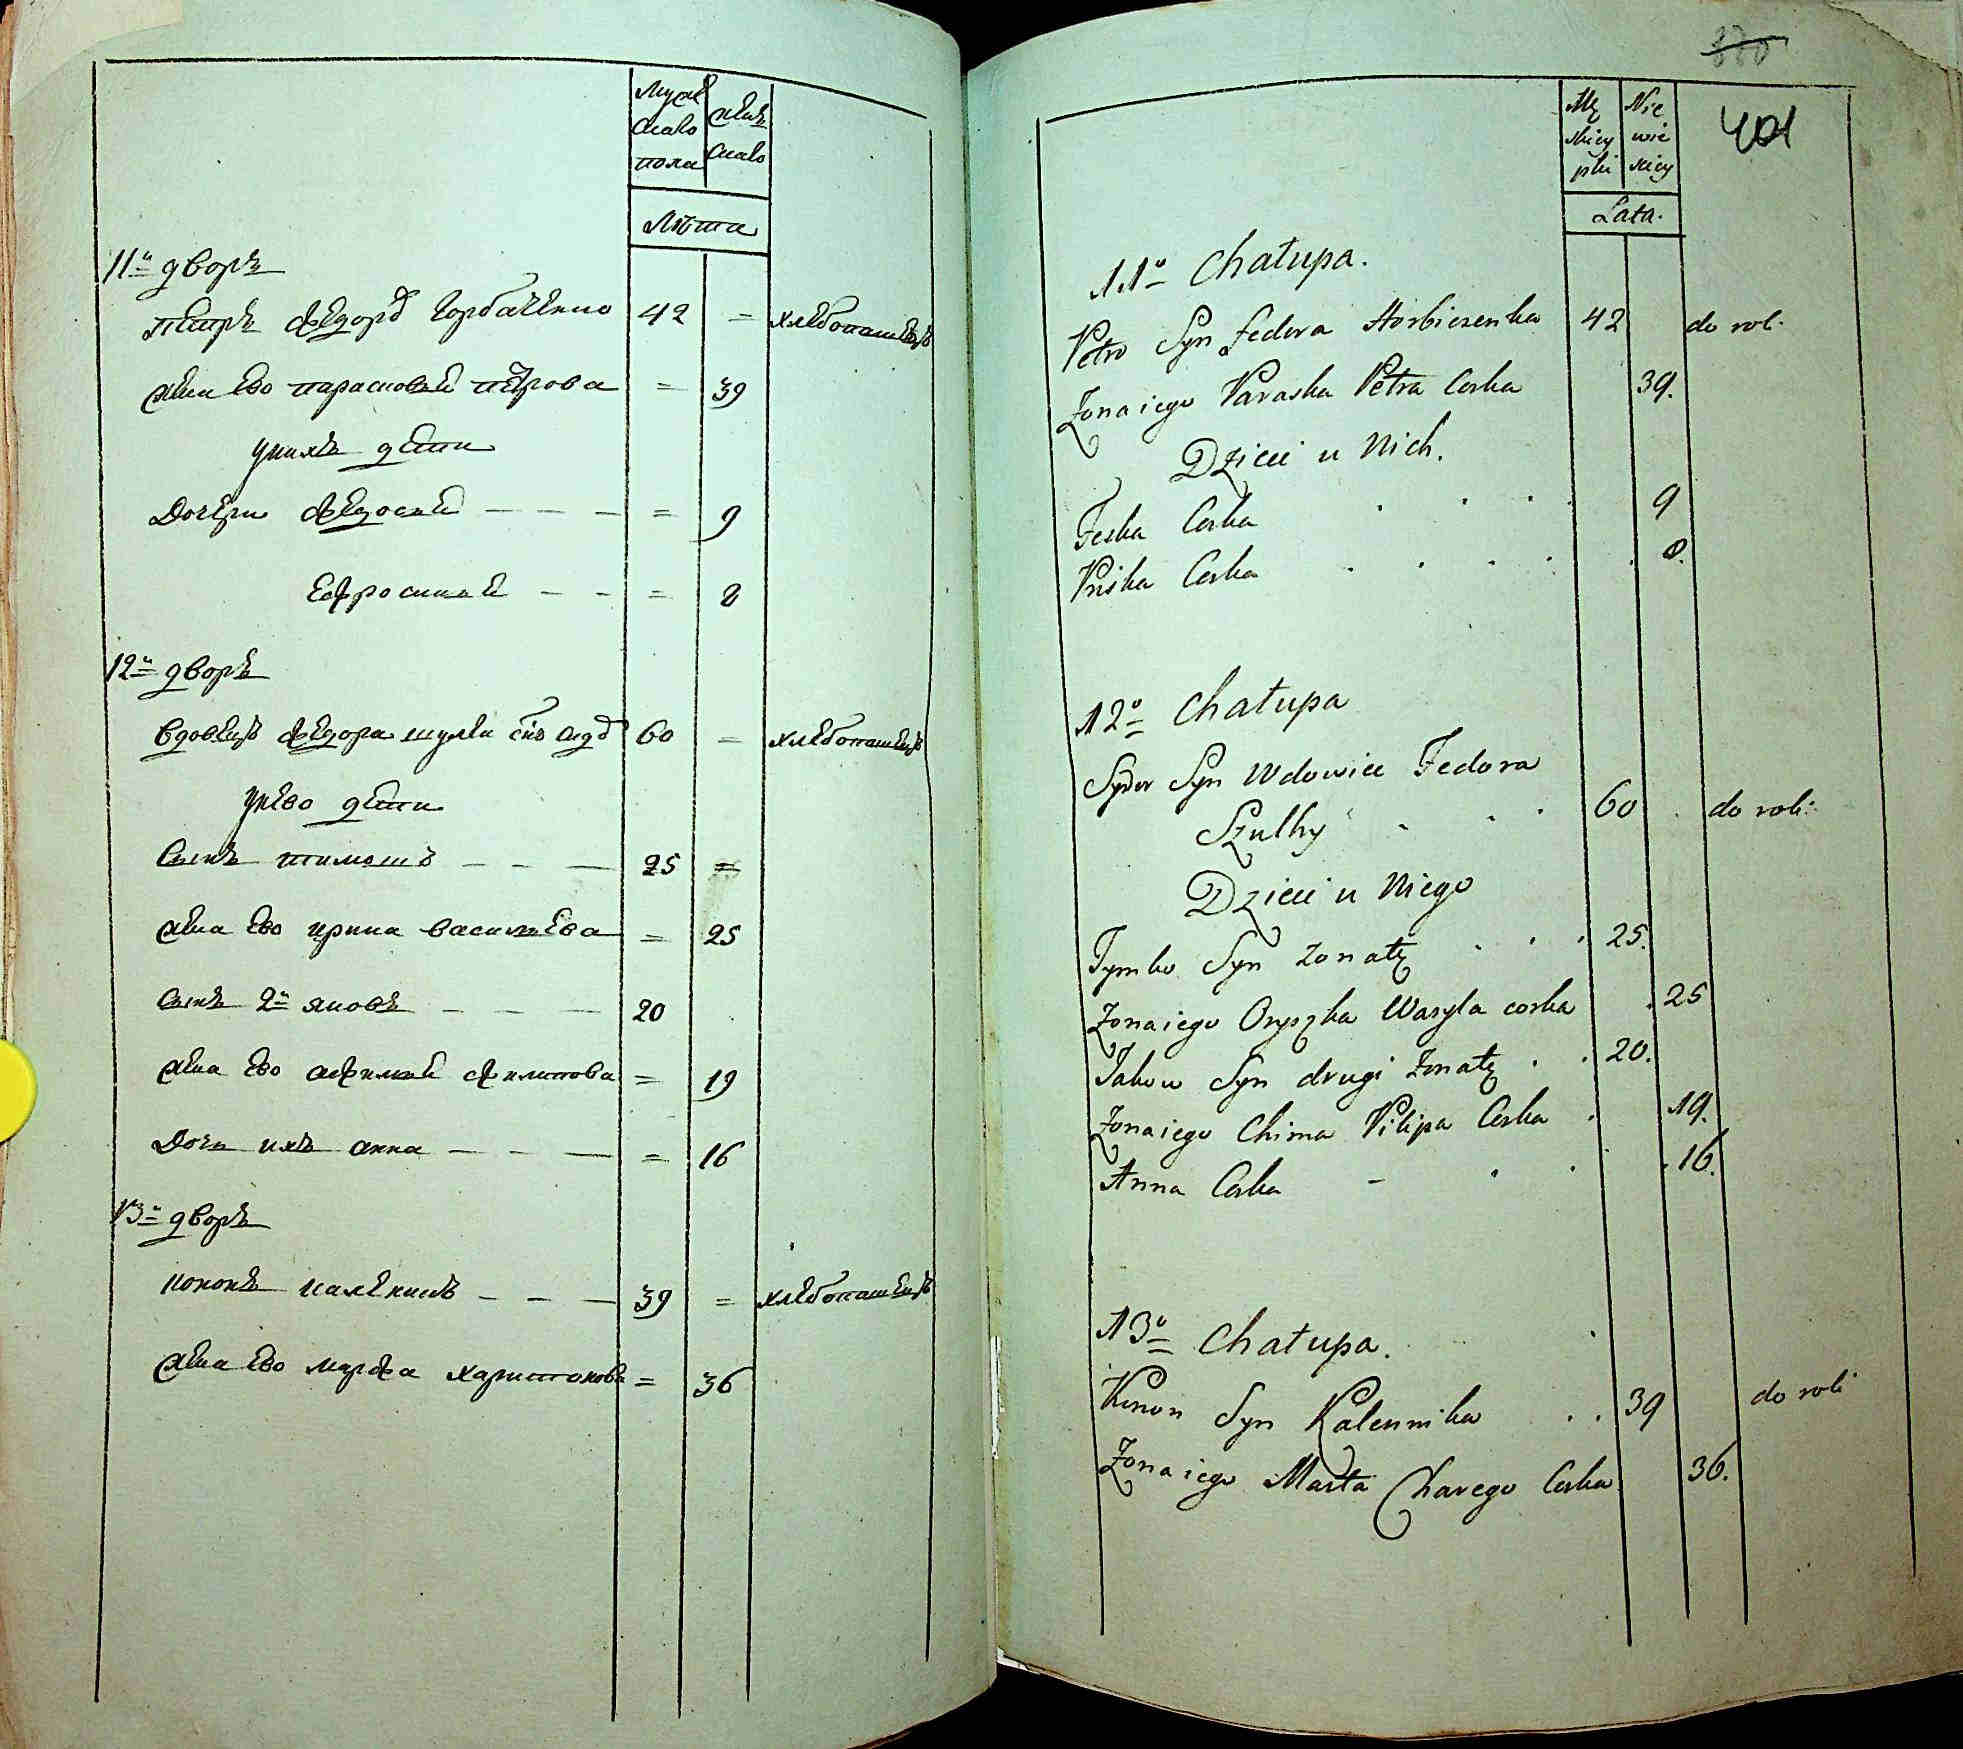 Мужескаго пола
женскаго
Лѣта
11й дворъ
Петръ Федоровъ Горбаченко 42 = хлебопашецъ
жена ево парасковея петрова = 39
уних дети
Дочери федосия = 9
ефросиния = 8
12й дворъ
вдовецъ федора шулги снъ сидоръ 60 = хлебопашецъ
унево дети
Сынъ тимошъ 25 =
жена ево ирина василиева = 25
Сынъ 2й яковъ 20
жена ево афимия филипова = 19
Дочь ихъ анна = 16
13й дворъ
кононъ каленикъ 39 = хлебопашецъ
жена ево марфа харитонова = 36
401
Męskiey płci
Niewieskiey
Lata.
11o Chałupa.
Petro Syn Fedora Horbiczenka 42 do rol:
Żona iego Paraska Petra Corka 39.
Dzieci u Nich.
Feska Corka 9
Priska Corka 8.
12o Chałupa
Sydor Syn Wdowiec Fedora
Szulhy 60 do roli:
Dzieci u Niego
Tymko Syn żonaty 25.
Żona iego Oryszka Wasyla corka 25
Jakow Syn drugi Żonaty 20.
Żona iego Chima Pilipa Corka 19.
Anna Corka 16.
13o Chałupa.
Konon Syn Kalennika 39 do roli
Żona iego Marta Charego Corka 36.